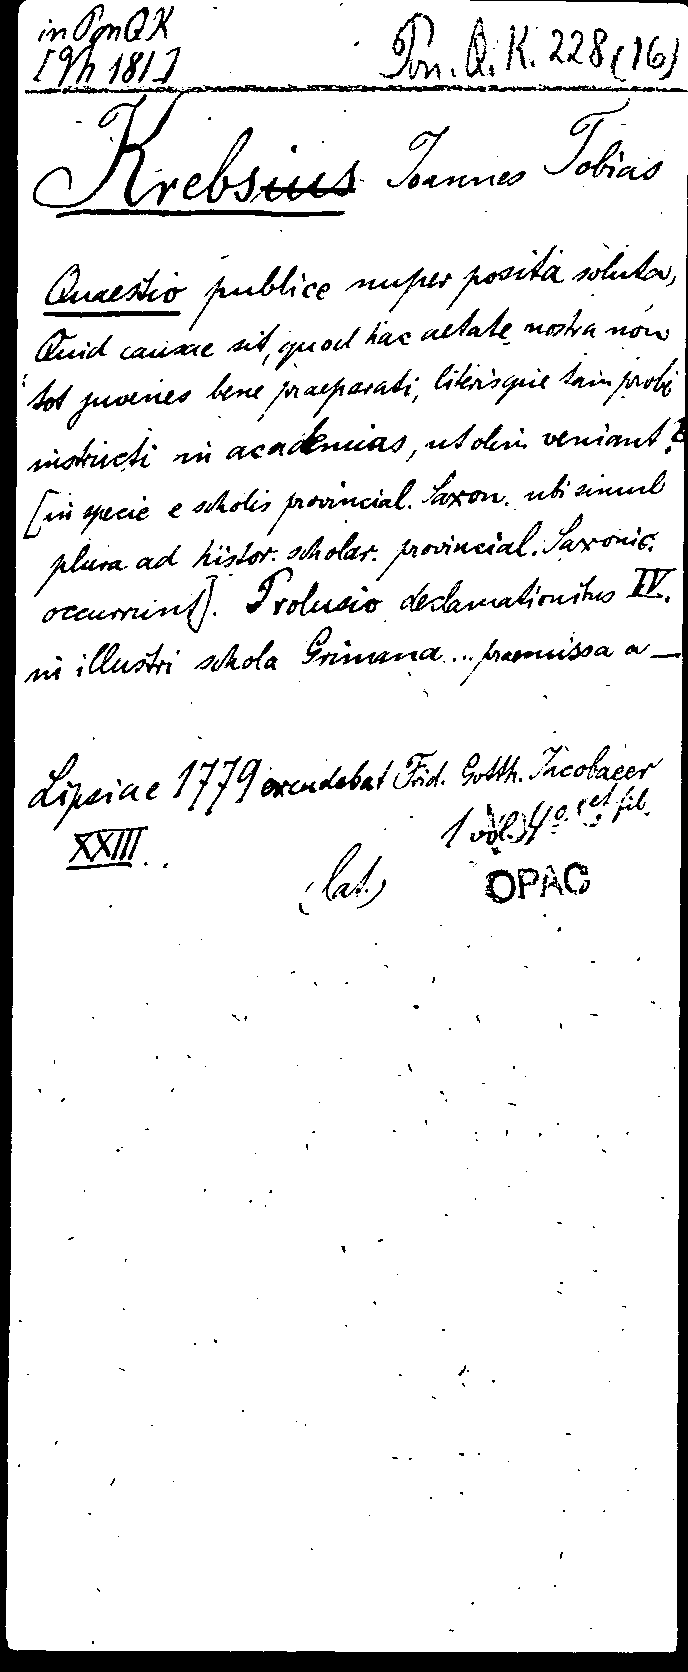 in Pon Q K
[Yh 181]
Pon. Q. K. 228 (16)
Krebsius Ioannes Tobias
Quaestio publice nuper posita soluta,
Quid causae sit, quod hac aetate nostra non
tot juvenes bene praeparati, literisque tam probe
instructi in academias, ut olim veniant?
[in specie e scholis provincial. Saxon. ubi simul
plura ad histor. scholar. provincial. Saxonic.
occurrunt]. Prolusio declamationibus IV.
in illustri schola Grimana ... praemissa a —
Lipsiae 1779 excudebat Frid. Gotth. Iacobaeer
XXIII.
1 vol. 4o. et fil.
(lat.)
OPAC